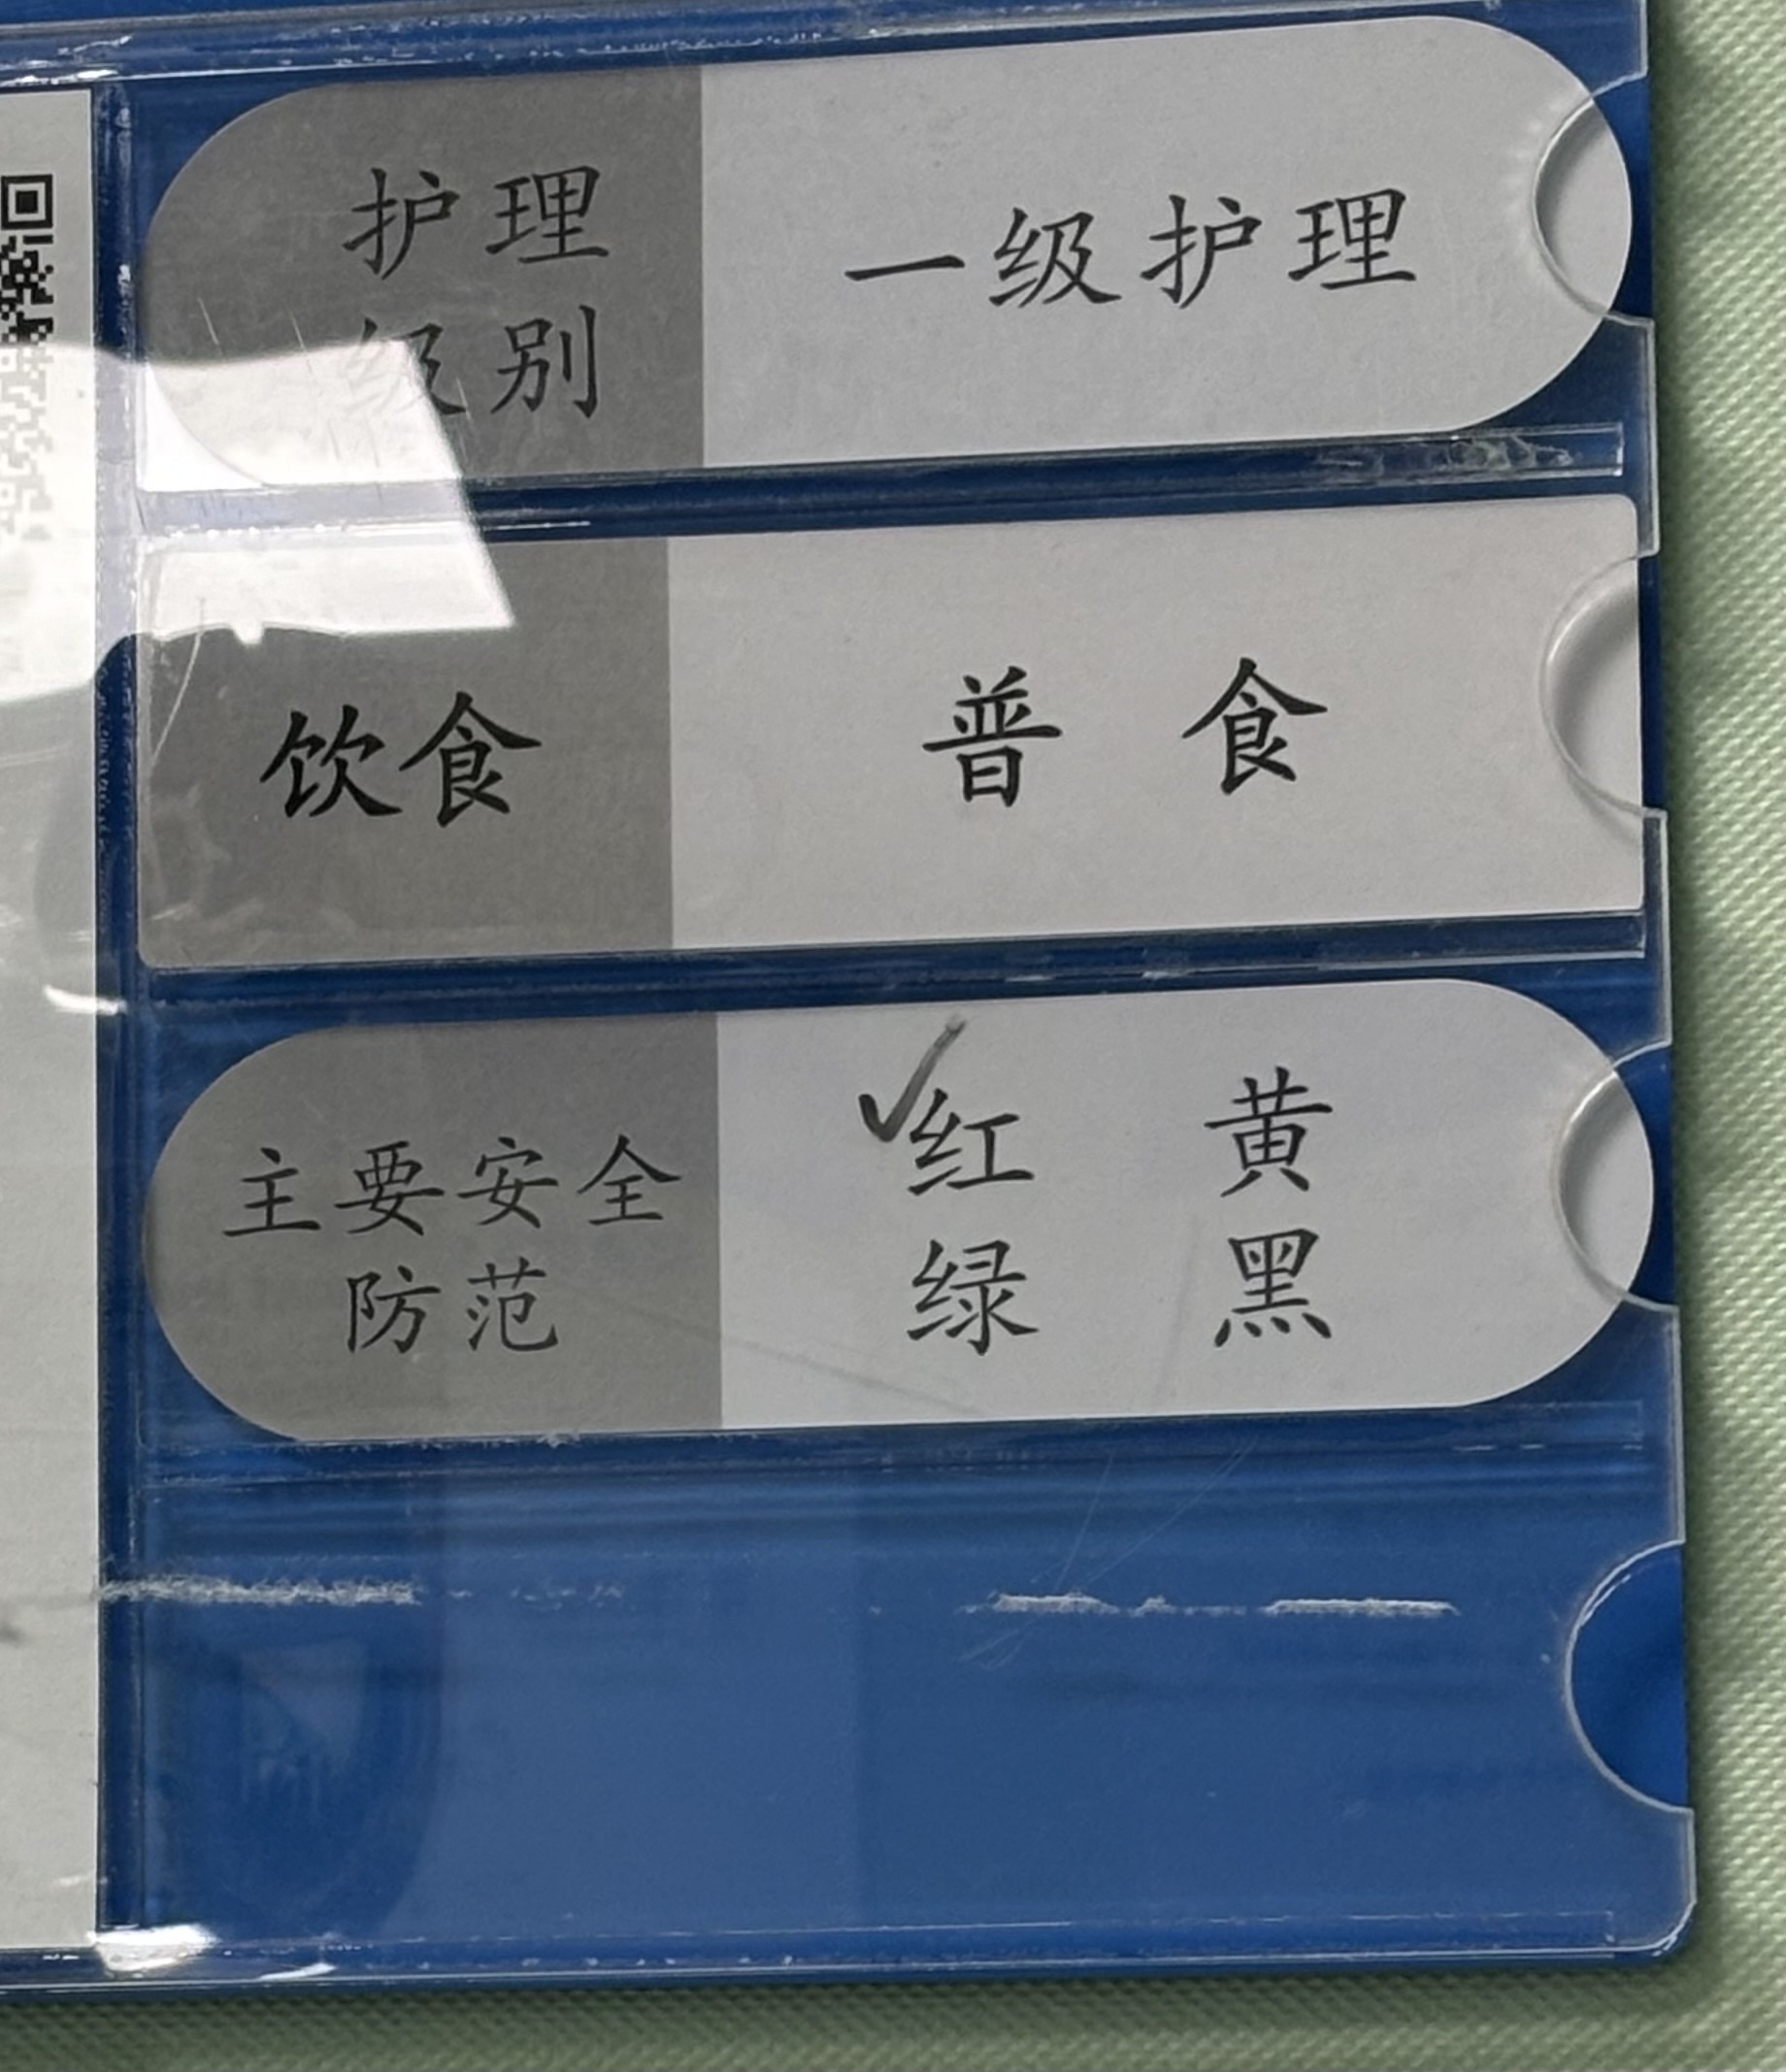 护理
级别
一级护理
饮食
普 食
主要安全
防范
✓红 黄
绿 黑